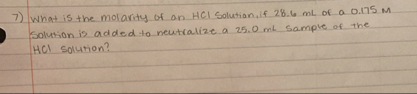 7) What is the molarity of an HCl solution, if 28.6 mL of a 0.175 M
solution is added to neutralize a 25.0 mL sample of the
HCl solution?